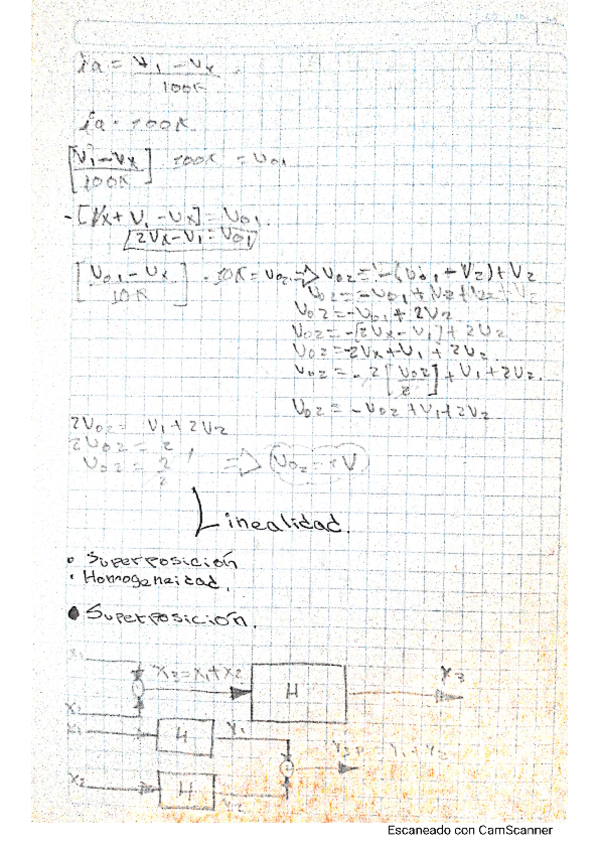 ia = V1 - Vx / 100K
ia · 100K
[V1 - Vx / 100K] 100K = Vo1
-[Vx + V1 - Vx] = Vo1
2Vx - V1 = Vo1
[Vo1 - Vx / 10K] · 10K = Vo2 → Vo2 = -(Vo1 - V2) + V2
Vo2 = -Vo1 + V2 + V2
Vo2 = -Vo1 + 2V2
Vo2 = -[2Vx - V1] + 2V2
Vo2 = -2Vx + V1 + 2V2
Vo2 = -2[Vo2 / 2] + V1 + 2V2.
Vo2 = -Vo2 + V1 + 2V2
2Vo2 = V1 + 2V2
2Vo2 = 2
Vo2 = 2 / 2 ⇒ Vo2 = 1V
Linealidad.
• Superposición
• Homogeneidad.
• Superposición.
X1
X3 = X1 + X2 H Y3
X2
X1 H Y1
Y1 + Y2
X2 H Y2
Escaneado con CamScanner